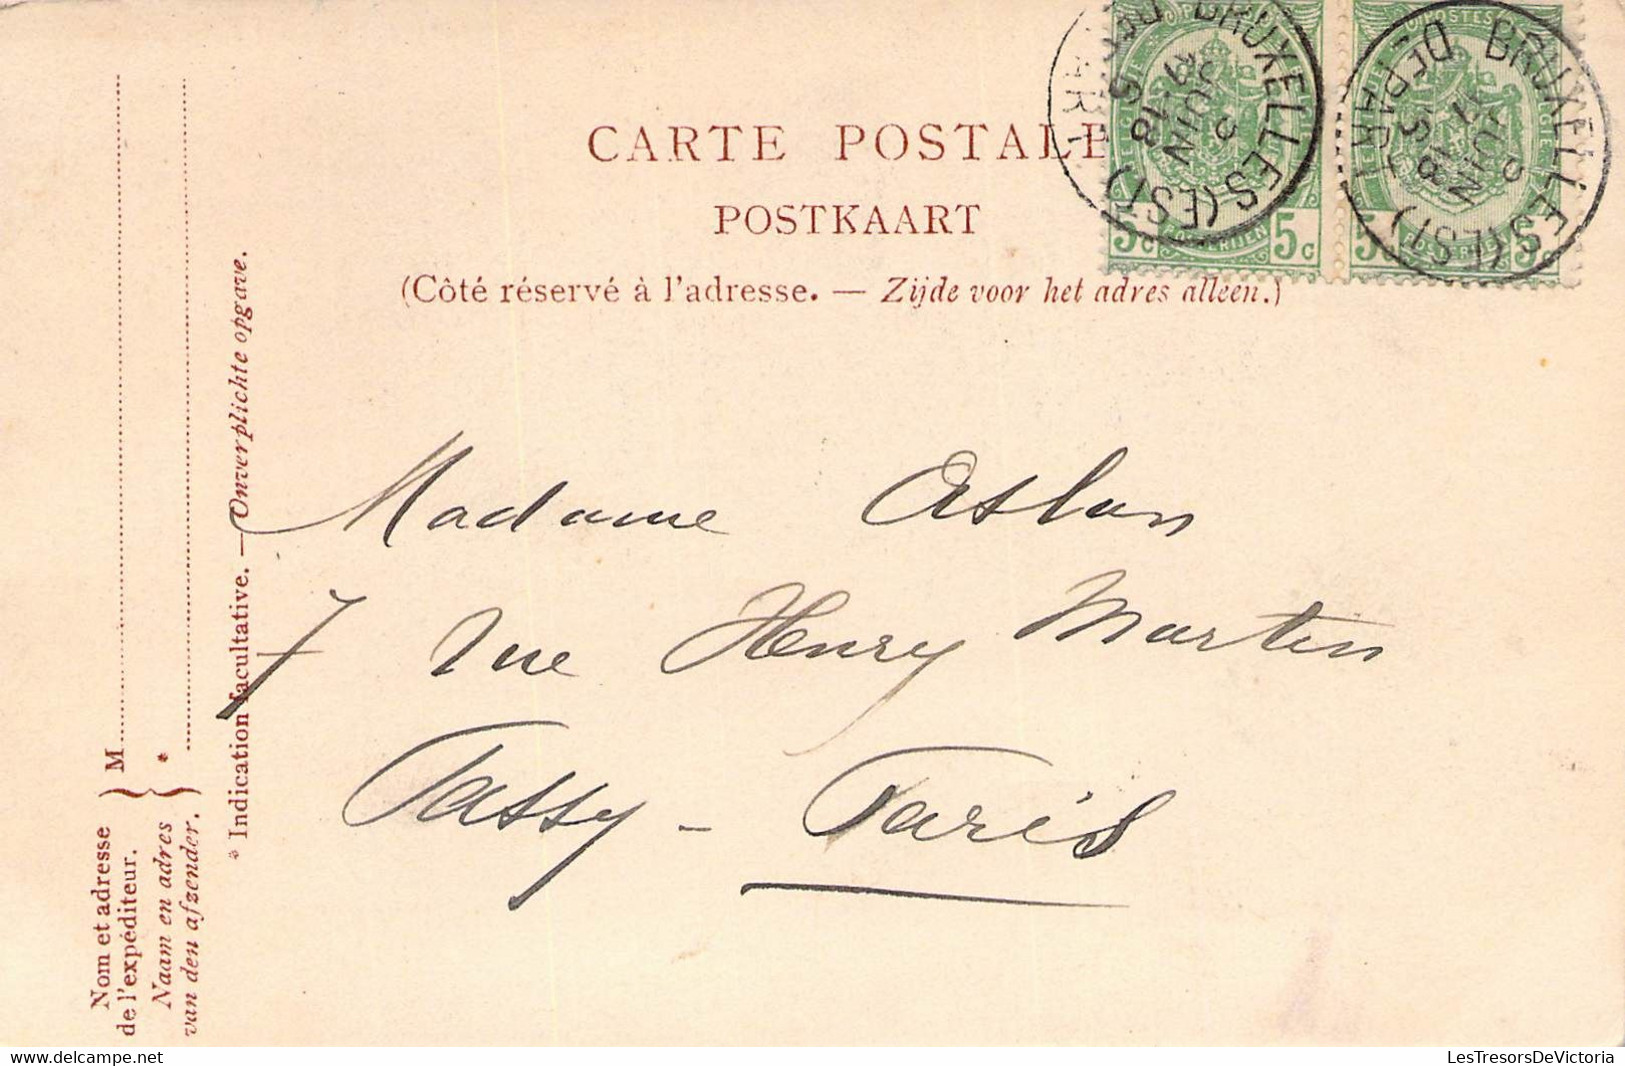 CARTE POSTALE
POSTKAART
(Côté réservé à l'adresse. — Zijde voor het adres alleen.)
POSTES
BRUXELLES (EST)
JUIN
18
DEPART
5c 5c
POSTERIJEN
BRUXELLES (EST)
JUIN
18
DEPART
5c 5c
Madame Aslan
7 rue Henry Martin
Passy - Paris
Nom et adresse
de l'expéditeur.
Naam en adres
van den afzender.
M
*
* Indication facultative. — Onverplichte opgave.
www.delcampe.net
LesTresorsDeVictoria